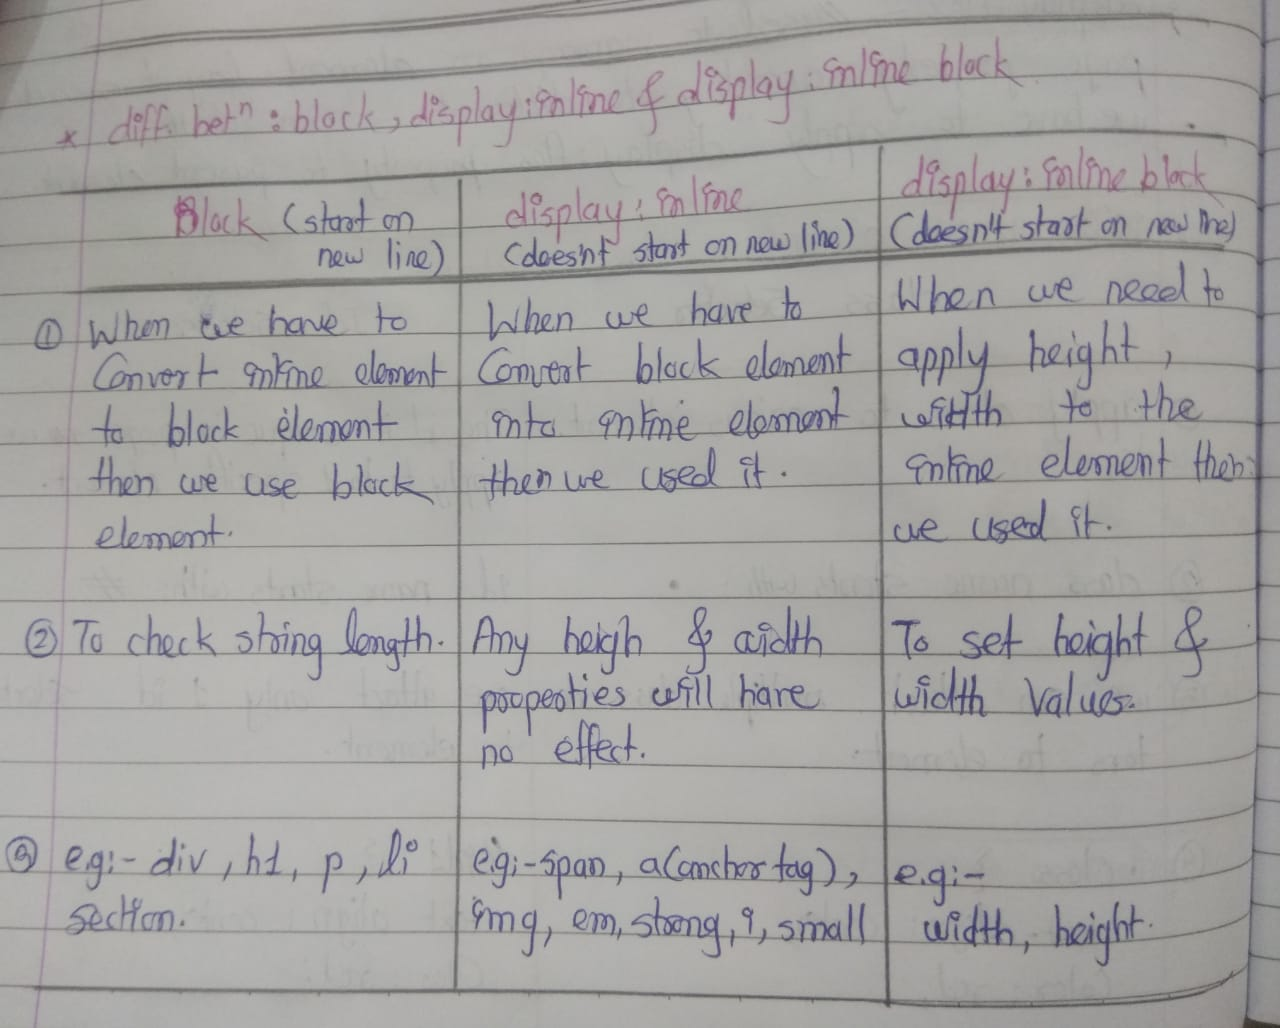 * diff. betn : block, display:inline & display: inline block
Block (start on
new line)
display: inline
(doesn't start on new line)
display: inline block
(doesn't start on new line)
① When we have to
Convert inline element
to block element
then we use block
element.
When we have to
Convert block element
into inline element
then we used it.
When we need to
apply height,
width to the
inline element then
we used it.
② To check string length.
Any heigh & width
properties will have
no effect.
To set height &
width values.
③ e.g:- div, h1, p, li
section.
e.g:- span, a(anchor tag),
img, em, strong, i, small
e.g:-
width, height.